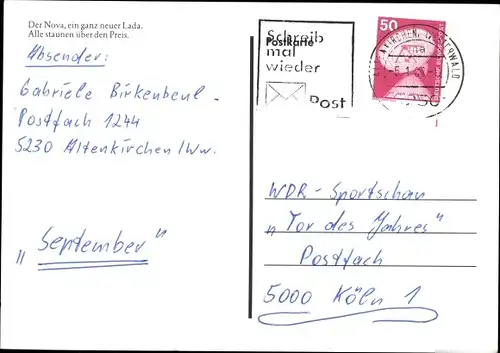 Der Nova, ein ganz neuer Lada.
Alle staunen über den Preis.
Absender:
Gabriele Birkenbeul -
Postfach 1244
5230 Altenkirchen /Ww.
„September"
Postkarte
Schreib
mal
wieder
Post
50
WDR - Sportschau
„Tor des Jahres"
Postfach
5000 Köln 1